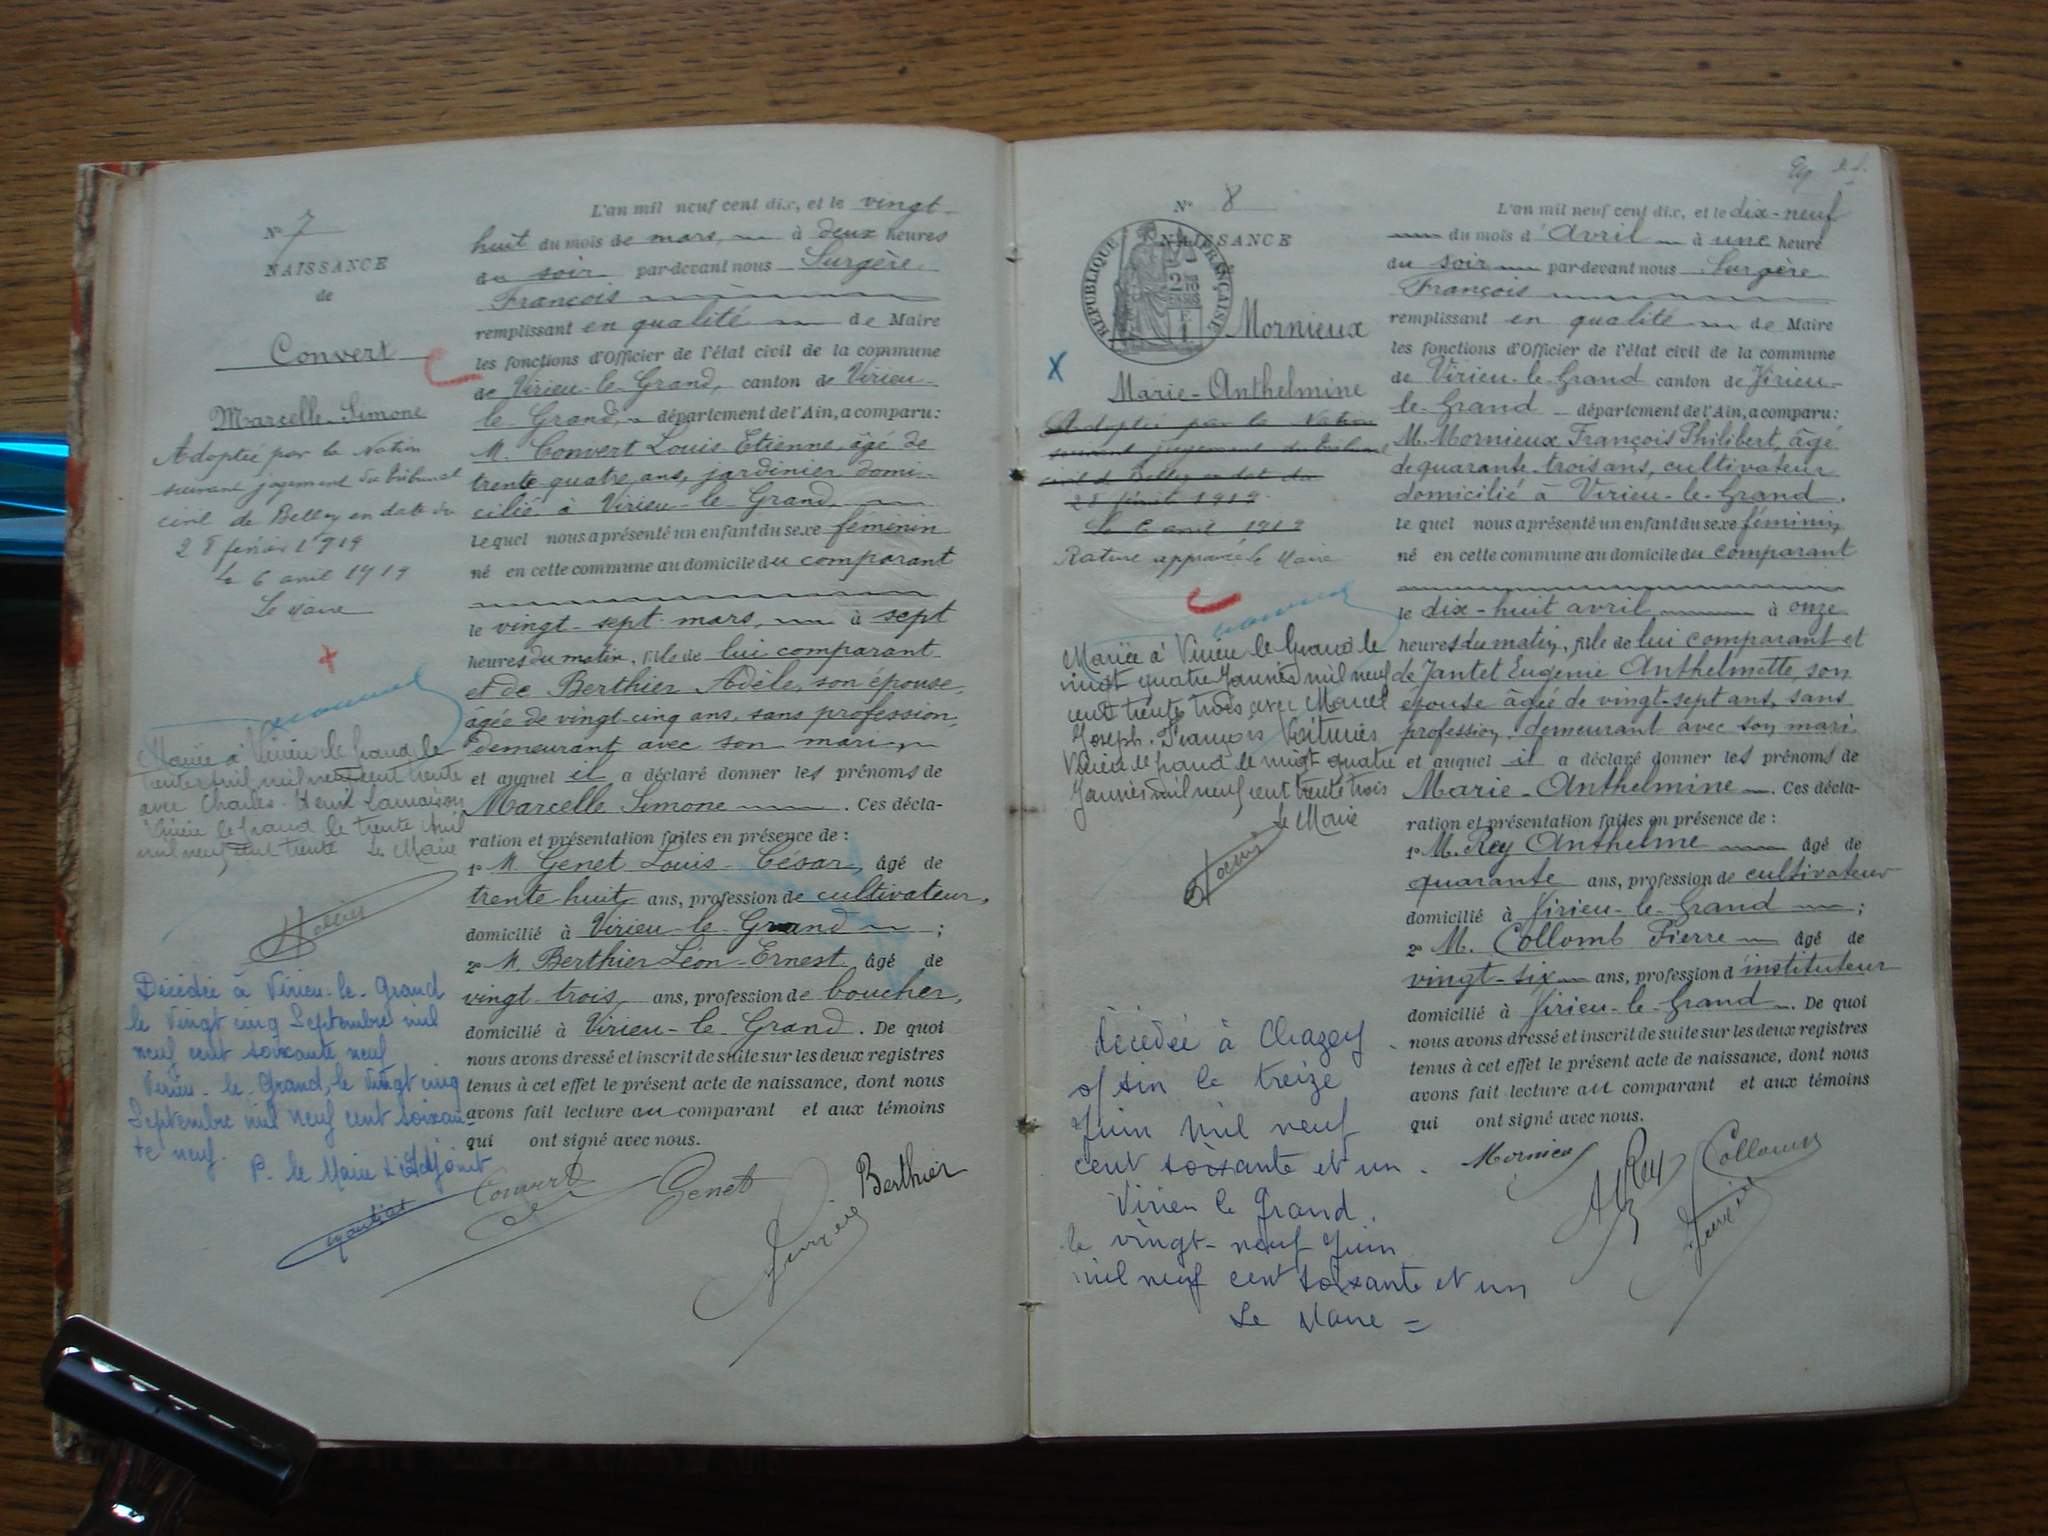 N° 7
NAISSANCE
de
Convert
Marcelle-Simone
Adoptée par la Nation
suivant jugement du tribunal
civil de Belley en date du
28 février 1919
le 6 avril 1919
Le Maire
Mariée à Virieu le Grand le
trente avril mil neuf cent trente
avec Charles-Henri Lamaison
Virieu le Grand le trente Avril
mil neuf cent trente Le Maire
Décédée à Virieu-le-Grand
le Vingt cinq Septembre mil
neuf cent soixante neuf
Virieu-le-Grand, le Vingt cinq
Septembre mil neuf cent soixan-
te neuf.
P. le Maire L'Adjoint
L'an mil neuf cent dix, et le vingt-
huit du mois de mars, à deux heures
du soir par-devant nous Surgère
François
remplissant en qualité de Maire
les fonctions d'Officier de l'état civil de la commune
de Virieu-le-Grand, canton de Virieu-
le-Grand, département de l'Ain, a comparu:
M. Convert Louis Etienne, âgé de
trente quatre ans, jardinier domi-
cilié à Virieu-le-Grand
lequel nous a présenté un enfant du sexe féminin
né en cette commune au domicile du comparant
le vingt-sept mars, à sept
heures du matin, fils de lui comparant
et de Berthier Adèle, son épouse,
âgée de vingt-cinq ans, sans profession,
demeurant avec son mari
et auquel il a déclaré donner les prénoms de
Marcelle Simone. Ces décla-
ration et présentation faites en présence de :
1° M. Genet Louis-César, âgé de
trente huit ans, profession de cultivateur,
domicilié à Virieu-le-Grand ;
2° M. Berthier Léon-Ernest âgé de
vingt trois, ans, profession de boucher,
domicilié à Virieu-le-Grand. De quoi
nous avons dressé et inscrit de suite sur les deux registres
tenus à cet effet le présent acte de naissance, dont nous
avons fait lecture au comparant et aux témoins
qui ont signé avec nous.
Convert Genet Berthier
Surgère
N° 8
NAISSANCE
RÉPUBLIQUE FRANÇAISE
Mornieux
Marie-Anthelmine
X
Adoptée par la Nation
suivant jugement du tribunal
civil de Belley en date du
28 février 1919
le 6 avril 1919
Rature approuvée le Maire
Mariée à Virieu le Grand le
vingt quatre Janvier mil neuf
cent trente trois avec Marcel
Joseph-François Voiturier
Virieu le Grand le vingt quatre
Janvier mil neuf cent trente trois
le Maire
Décédée à Chazey
le treize
Juin mil neuf
cent soixante et un.
Virieu le Grand.
le vingt-neuf Juin
mil neuf cent soixante et un
Le Maire =
L'an mil neuf cent dix, et le dix-neuf
du mois d'Avril à une heure
du soir par-devant nous Surgère
François
remplissant en qualité de Maire
les fonctions d'Officier de l'état civil de la commune
de Virieu-le-Grand canton de Virieu-
le-Grand département de l'Ain, a comparu:
M. Mornieux François Philibert, âgé
de quarante-trois ans, cultivateur
domicilié à Virieu-le-Grand.
lequel nous a présenté un enfant du sexe féminin
né en cette commune au domicile du comparant
le dix-huit avril à onze
heures du matin, fils de lui comparant et
de Jantet Eugénie Anthelmette, son
épouse âgée de vingt-sept ans, sans
profession, demeurant avec son mari
et auquel il a déclaré donner les prénoms de
Marie-Anthelmine. Ces décla-
ration et présentation faites en présence de :
1° M. Rey Anthelme âgé de
quarante ans, profession de cultivateur
domicilié à Virieu-le-Grand ;
2° M. Collomb Pierre âgé de
vingt-six ans, profession d'instituteur
domicilié à Virieu-le-Grand. De quoi
nous avons dressé et inscrit de suite sur les deux registres
tenus à cet effet le présent acte de naissance, dont nous
avons fait lecture au comparant et aux témoins
qui ont signé avec nous.
Mornieux A Rey Collomb
Surgère